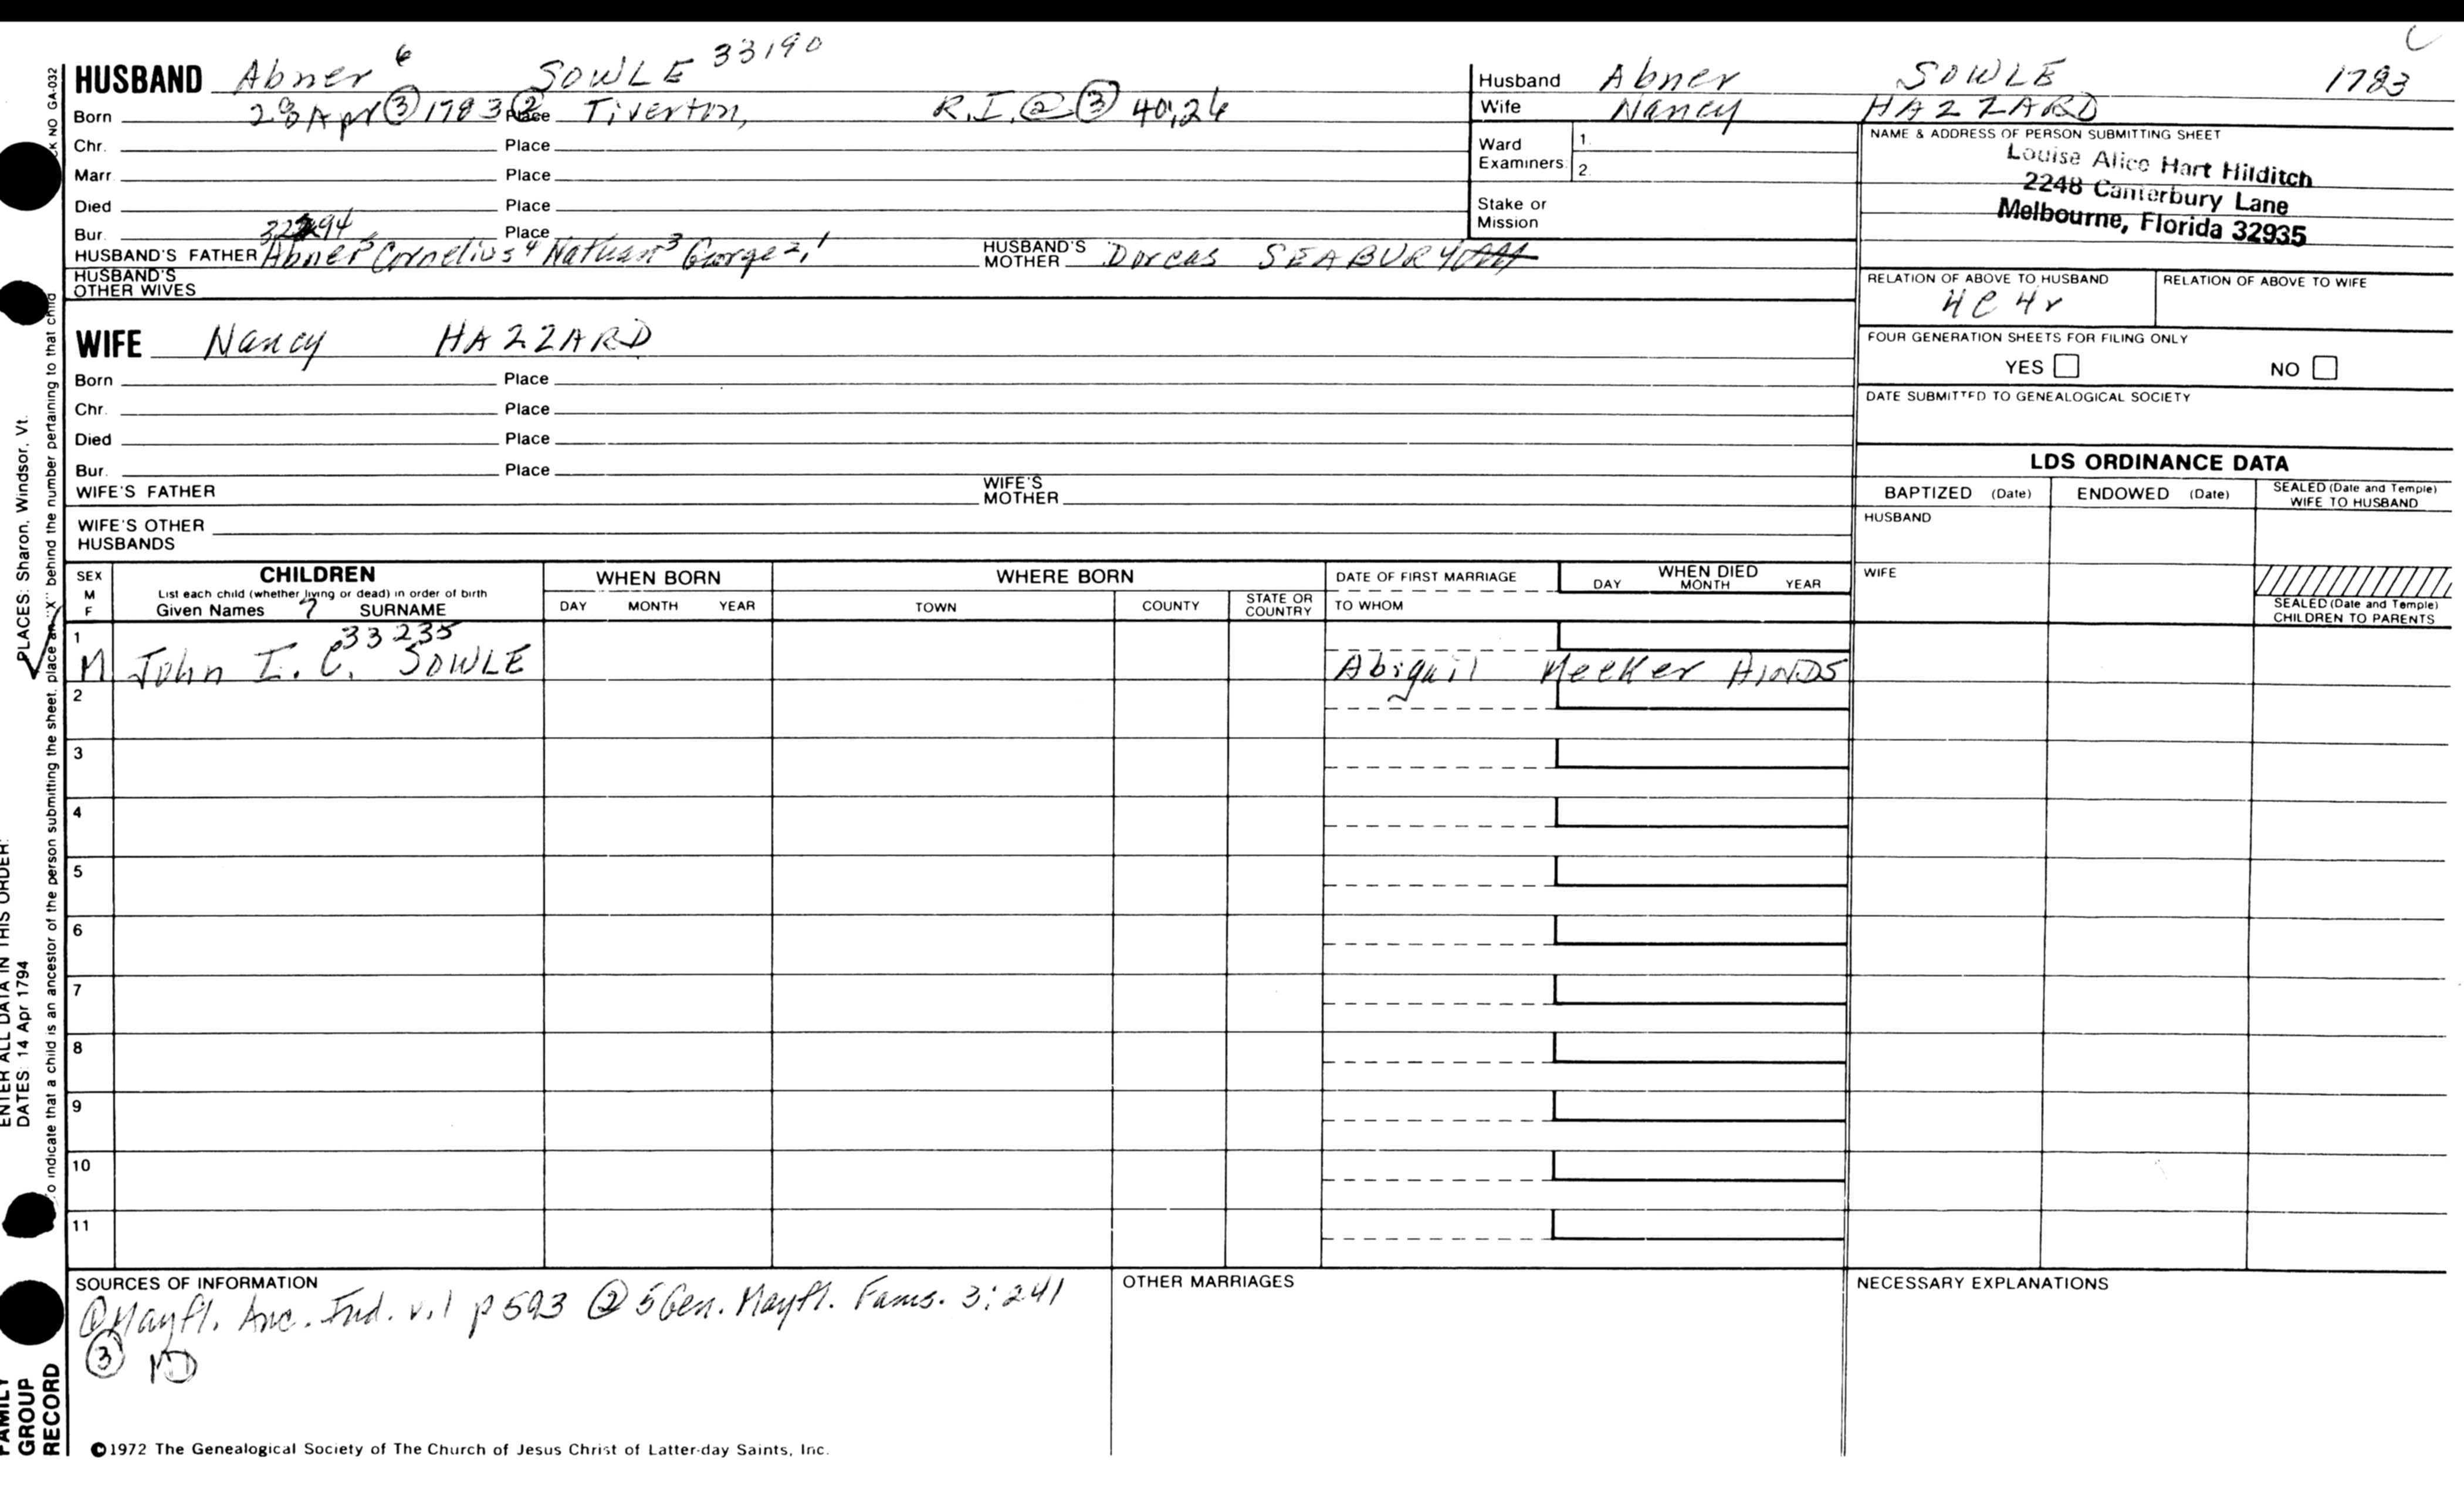 HUSBAND Abner 6 SOWLE 33190
Born 28 Apr ③ 1783 ② Place Tiverton, R.I. ② ③ 40;26
Chr. Place
Marr. Place
Died Place
Bur. Place
HUSBAND'S FATHER Abner 5 Cornelius 4 Nathan 3 George 2, 1 HUSBAND'S MOTHER Dorcas SEABURY
HUSBAND'S OTHER WIVES
WIFE Nancy HAZZARD
Born Place
Chr. Place
Died Place
Bur. Place
WIFE'S FATHER WIFE'S MOTHER
WIFE'S OTHER HUSBANDS
Husband Abner SOWLE 1783
Wife Nancy HAZZARD
Ward Examiners 1. 2.
Stake or Mission
NAME & ADDRESS OF PERSON SUBMITTING SHEET
Louise Alice Hart Hilditch
2248 Canterbury Lane
Melbourne, Florida 32935
RELATION OF ABOVE TO HUSBAND RELATION OF ABOVE TO WIFE
4C4r
FOUR GENERATION SHEETS FOR FILING ONLY
YES NO
DATE SUBMITTED TO GENEALOGICAL SOCIETY
LDS ORDINANCE DATA
BAPTIZED (Date) ENDOWED (Date) SEALED (Date and Temple) WIFE TO HUSBAND
HUSBAND
WIFE
SEALED (Date and Temple) CHILDREN TO PARENTS
SEX M F
CHILDREN
List each child (whether living or dead) in order of birth
Given Names 7 SURNAME
WHEN BORN
DAY MONTH YEAR
WHERE BORN
TOWN COUNTY STATE OR COUNTRY
DATE OF FIRST MARRIAGE
TO WHOM
WHEN DIED
DAY MONTH YEAR
1 33235
M John I. C. SOWLE Abigail Meeker HINDS
2
3
4
5
6
7
8
9
10
11
SOURCES OF INFORMATION
① Mayfl. Anc. Ind. v.1 p 593 ② 5 Gen. Mayfl. Fams. 3:241
③ MD
OTHER MARRIAGES
NECESSARY EXPLANATIONS
©1972 The Genealogical Society of The Church of Jesus Christ of Latter-day Saints, Inc.
FAMILY GROUP RECORD
ENTER ALL DATA IN THIS ORDER:
DATES: 14 Apr 1794
PLACES: Sharon, Windsor, Vt.
To indicate that a child is an ancestor of the person submitting the sheet, place an "X" behind the number pertaining to that child
NO GA-032